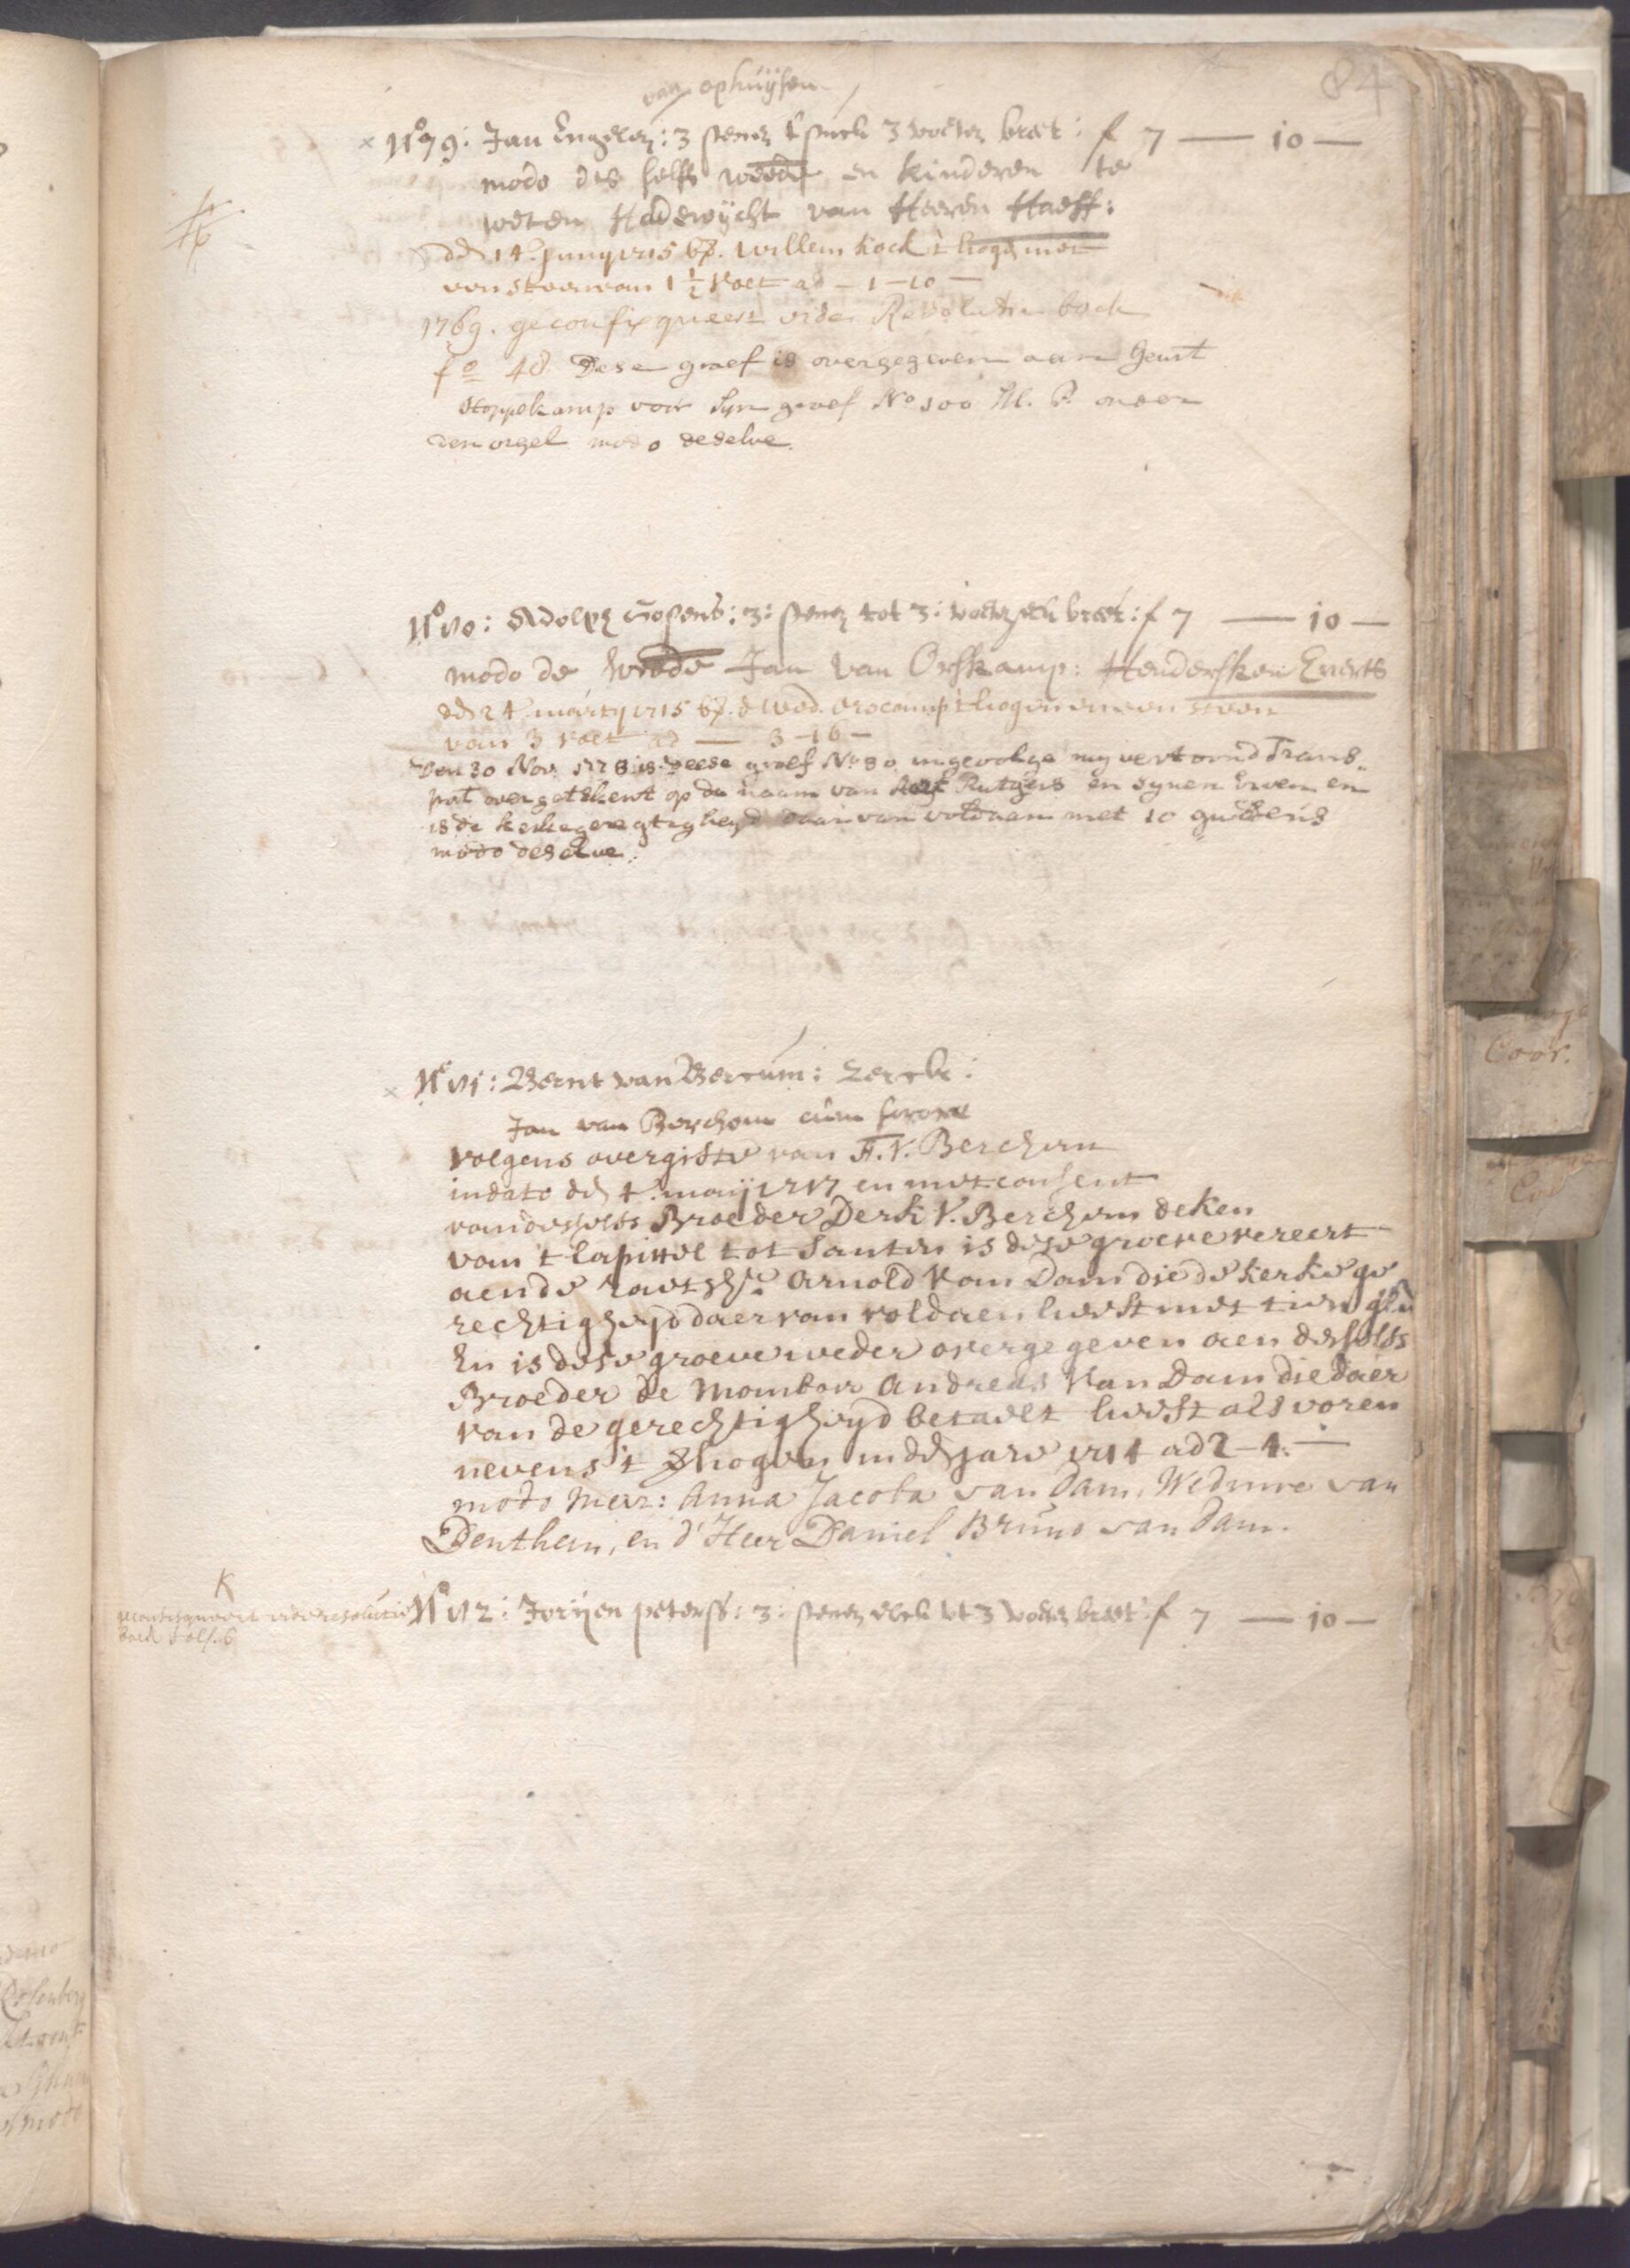 84
van ophuijsen
× No 79: Jan Engelen: 3 stenen 3 voeten breet: f 7 — 10 —
modo des selfs weede en kinderen te
weten Hadewijcht van Heeren Haeff:
dd 14 Juny 1715 bet. Willem Kock t hogen met
een steen van 1 1/2 voet ad — 1 — 10 —
1769. geconfisqueert vide Resolutie boek
fo 48 Dese graef is overgegeven aan Geurt
Stoppelkamp voor Syn graef No 100 M. P. onder
den orgel modo deselve.
No 80: Adolph Gosens: 3: stenen tot 3: voeten breet: f 7 — 10 —
modo de weede Jan van Orskamp: Hendersken Everts
dd 24 marty 1715 bet. d wed. Orscamp t hogen en een steen
van 3 voet ad — 3 — 16 —
Den 30 Nov. 1778 is deese graef No 80 ingevolge my vertoond Trans-
port overgetekent op de naam van Aert Rutgers en synen Erven en
is de kerkegeregtigheyd daar van voldaan met 10 guldens
modo deselve.
× No 81: Bernt van Bercum: zerck:
Jan van Berchem cum sorore
volgens overgifte van F. V. Berchem
in dato dd 4 maij 1717 en met consent
van desselfs Broeder Derk V. Berchem deken
van 't Capittel tot Santen is dese groeve vereert
aen de raetshr. Arnold van Dam die de kerke ge
rechtigheyd daer van voldaen heeft met tien gln
En is dese groeve weder overgegeven aen desselfs
Broeder de Momboir Andreas van Dam die daer
van de gerechtigheyd betaelt heeft als voren
nevens 't hogen in den jare 1714 ad 2 — 4: —
modo Mevr: Anna Jacoba van Dam, Weduwe van
Benthem, en d'Heer Daniel Bruno van Dam.
K
geconfisqueert vide resolutie
boek fol. 6
No 82: Jorijen peterss: 3: stenen 3 voeten breet f 7 — 10 —
Coor.